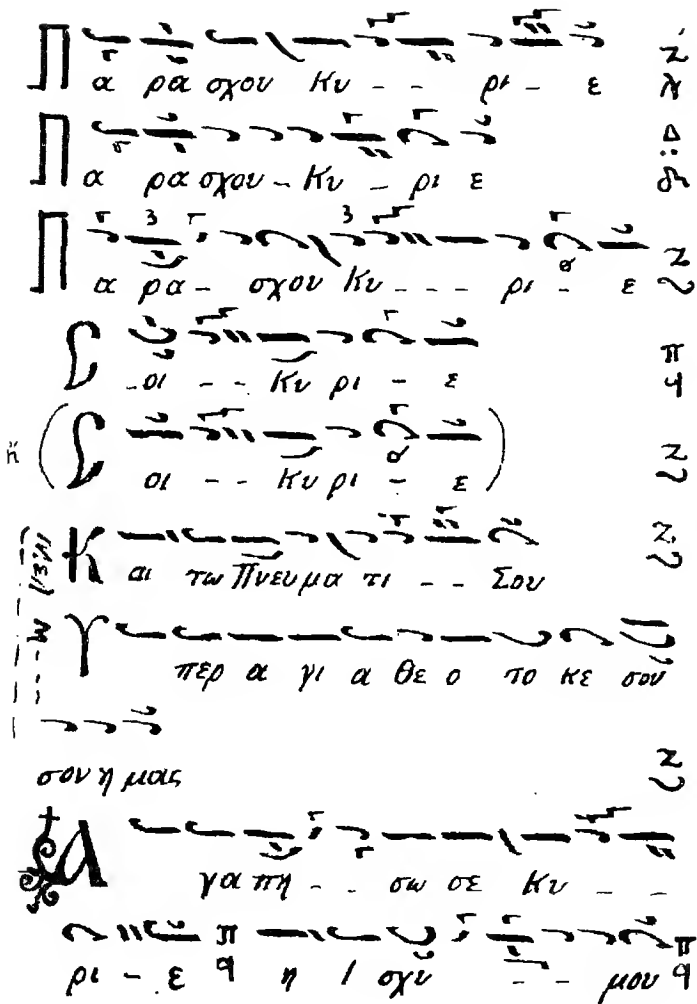 Πα ρα σχου Κυ - - ρι - ε
Πα ρα σχου - Κυ - ρι ε
Πα ρα - σχου Κυ - - - ρι - ε
Σοι - - Κυ ρι - ε
ἤ (Σοι - - Κυ ρι - ε)
Και τω Πνευ μα τι - - Σου
Υπερ α γι α Θε ο το κε σου
σον η μας
Αγα πη - - σω σε Κυ - -
ρι - ε η ι σχυ - - μου